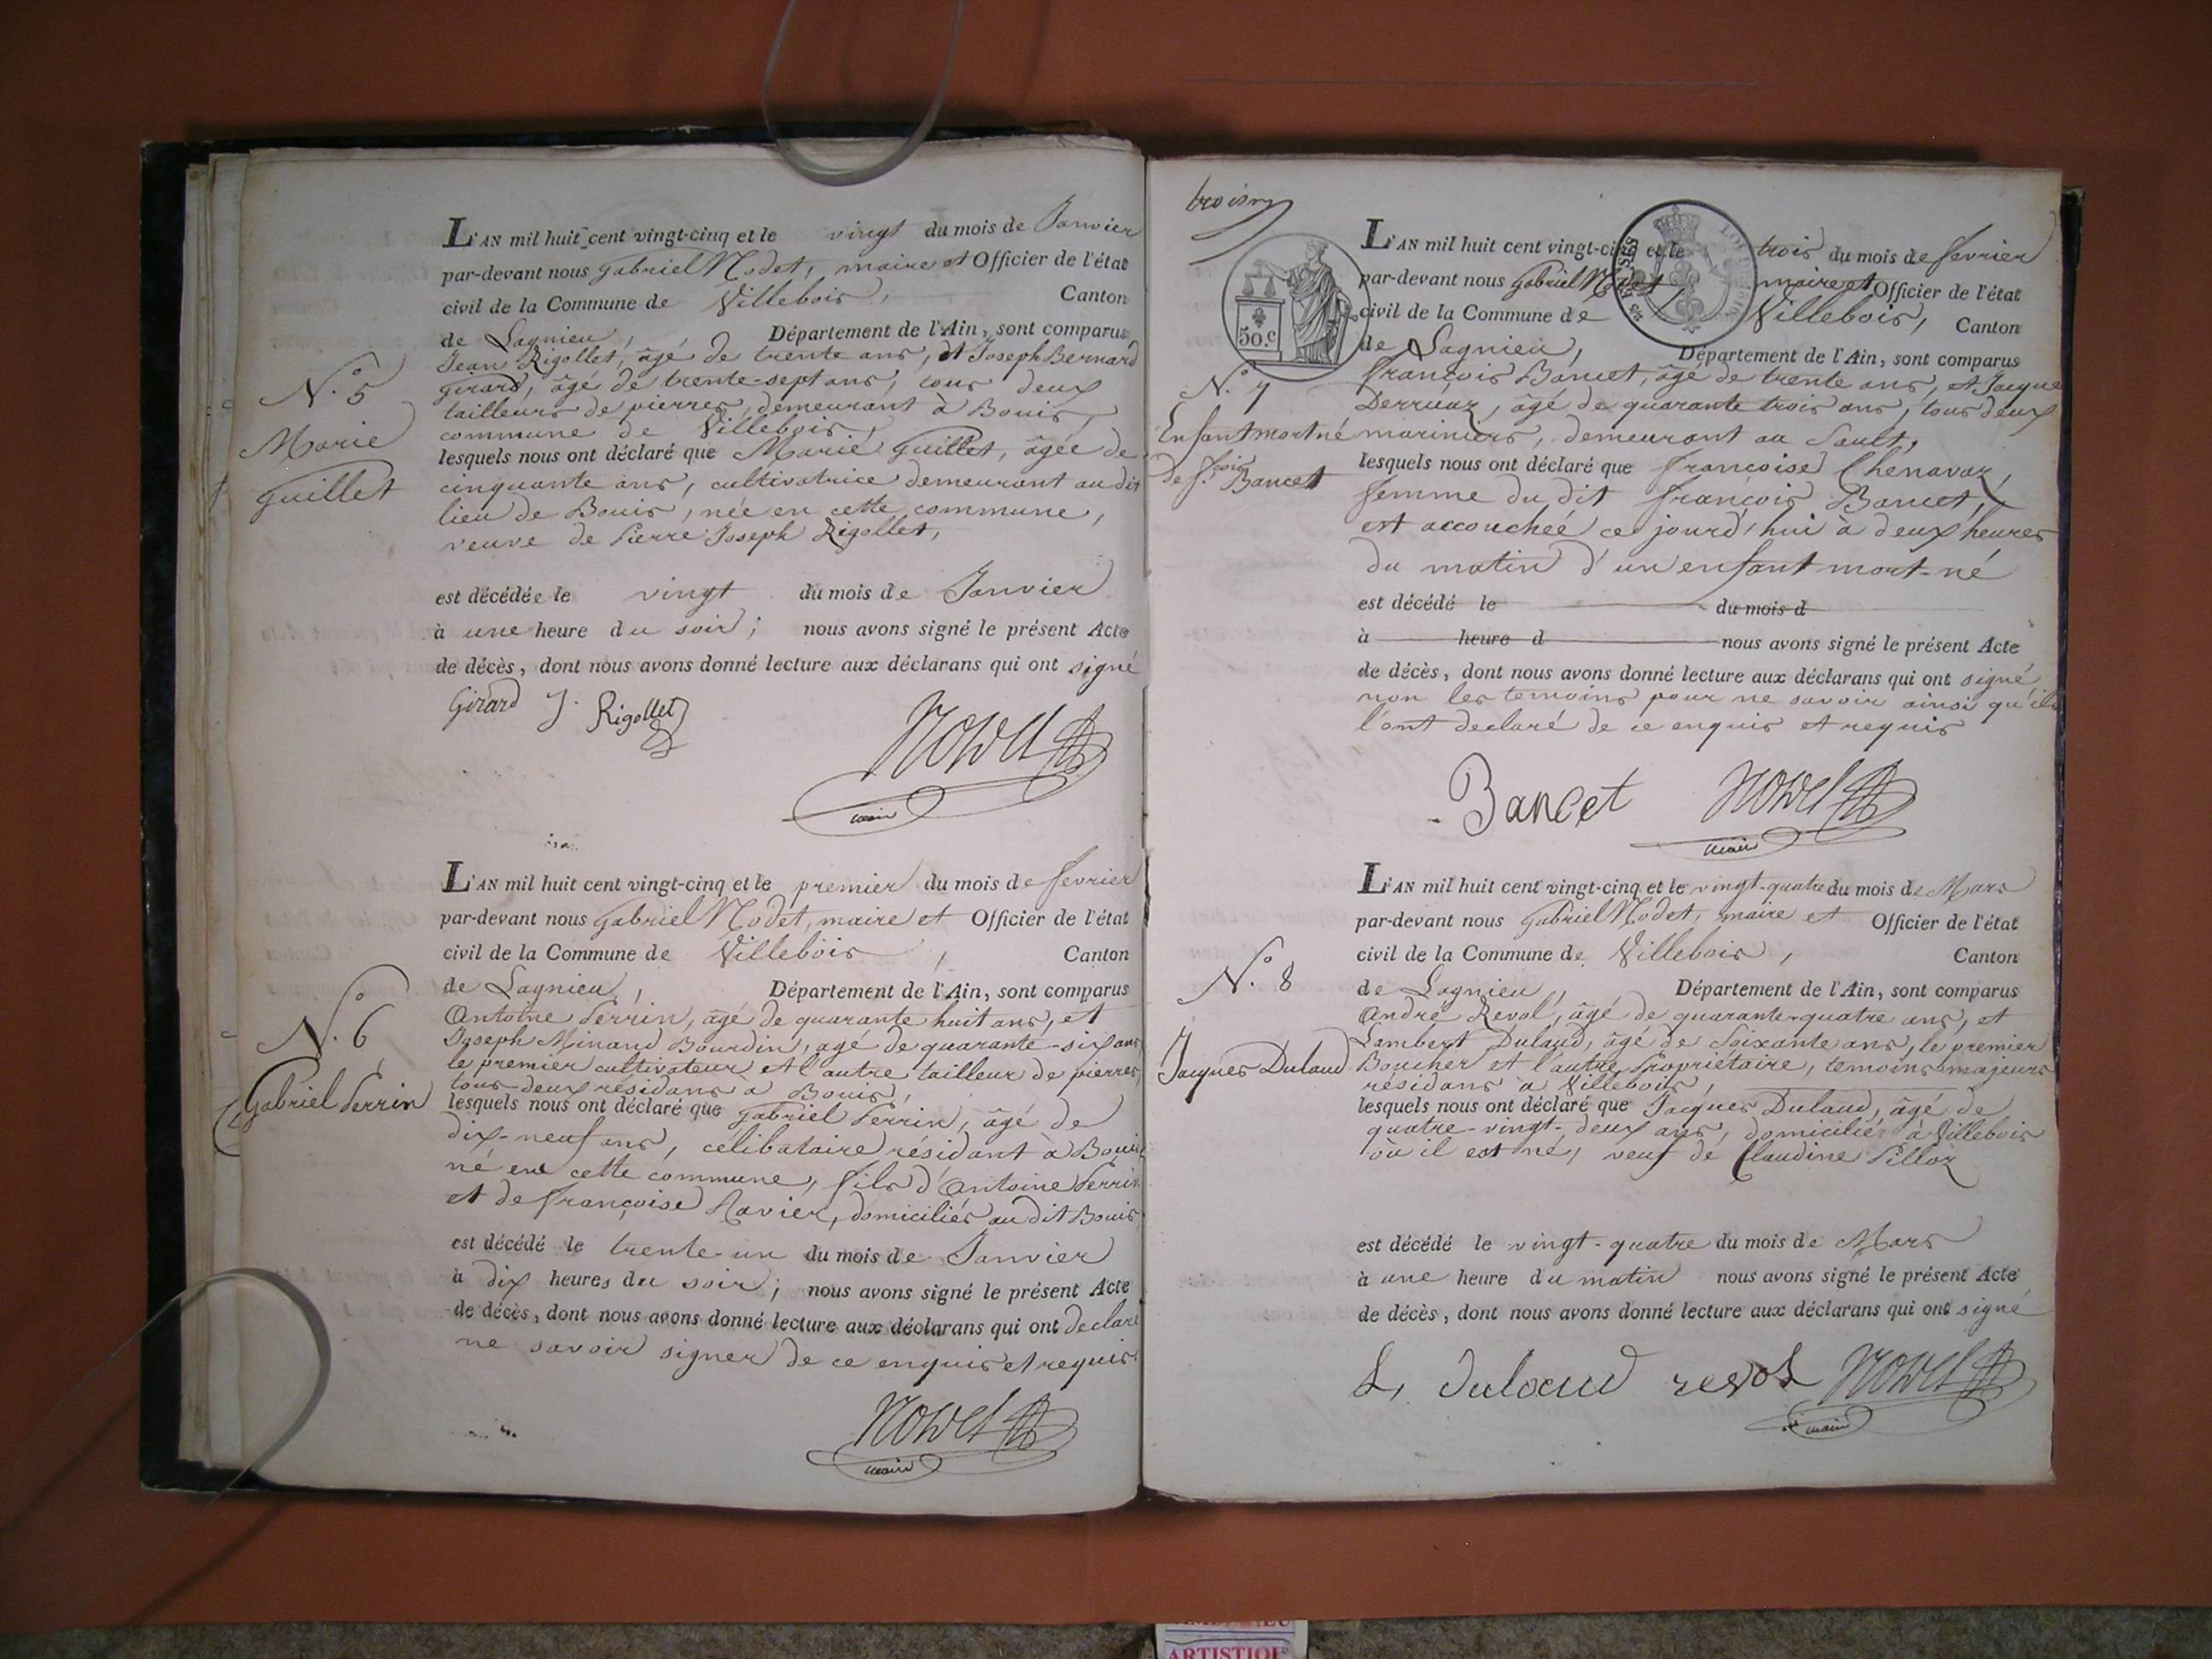 L'AN mil huit cent vingt-cinq et le vingt du mois de Janvier
par-devant nous Gabriel Nodet, maire et Officier de l'état
civil de la Commune de Villebois, Canton
de Lagnieu, Département de l'Ain, sont comparus
Jean Rigollet, âgé de trente ans, et Joseph Bernard
Girard, âgé de trente-sept ans, tous deux
tailleurs de pierres, demeurant à Bouis,
commune de Villebois,
N.o 5
Marie
Guillet
lesquels nous ont déclaré que Marie Guillet, âgée de
cinquante ans, cultivatrice demeurant au dit
lieu de Bouis, née en cette commune,
veuve de Pierre Joseph Rigollet,
est décédée le vingt du mois de Janvier
à une heure du soir; nous avons signé le présent Acte
de décès, dont nous avons donné lecture aux déclarans qui ont signé
Girard J. Rigollet
maire
L'AN mil huit cent vingt-cinq et le premier du mois de fevrier
par-devant nous Gabriel Nodet, maire et Officier de l'état
civil de la Commune de Villebois, Canton
de Lagnieu, Département de l'Ain, sont comparus
Antoine Perrin, âgé de quarante huit ans, et
Joseph Minand Bourdin, agé de quarante-six ans
le premier cultivateur et l'autre tailleur de pierres,
tous deux résidans à Bouis,
N.o 6
Gabriel Perrin
lesquels nous ont déclaré que Gabriel Perrin, âgé de
dix-neuf ans, célibataire résidant à Bouis
né en cette commune, fils d'Antoine Perrin
et de françoise Ravier, domiciliés au dit Bouis
est décédé le trente-un du mois de Janvier
à dix heures du soir; nous avons signé le présent Acte
de décès, dont nous avons donné lecture aux déclarans qui ont declaré
ne savoir signer de ce enquis et requis.
maire
50.c
L'AN mil huit cent vingt-cinq et le trois du mois de fevrier
par-devant nous Gabriel Nodet, maire et Officier de l'état
civil de la Commune de Villebois, Canton
de Lagnieu, Département de l'Ain, sont comparus
françois Bancet, âgé de trente ans, et Jacque
Derruaz, âgé de quarante trois ans, tous deux
mariniers, demeurant au Sault,
N.o 7
Enfant mort né
de f.cois Bancet
lesquels nous ont déclaré que françoise Chenavaz,
femme du dit françois Bancet,
est accouchée ce jourd'hui à deux heures
du matin d'un enfant mort-né
est décédé le du mois d
à heure d nous avons signé le présent Acte
de décès, dont nous avons donné lecture aux déclarans qui ont signé
non les temoins pour ne savoir ainsi qu'ils
l'ont declaré de ce enquis et requis
Bancet
maire
L'AN mil huit cent vingt-cinq et le vingt-quatre du mois de Mars
par-devant nous Gabriel Nodet, maire et Officier de l'état
civil de la Commune de Villebois, Canton
de Lagnieu, Département de l'Ain, sont comparus
André Revol, âgé de quarante-quatre ans, et
Lambert Dulaud, âgé de Soixante ans, le premier
Boucher et l'autre Propriétaire, temoins majeurs
résidans à Villebois,
N.o 8
Jacques Dulaud
lesquels nous ont déclaré que Jacques Dulaud, âgé de
quatre-vingt-deux ans, domicilié à Villebois
où il est né, veuf de Claudine Pilloz
est décédé le vingt-quatre du mois de Mars
à une heure du matin nous avons signé le présent Acte
de décès, dont nous avons donné lecture aux déclarans qui ont signé
L. Dulaud revol
maire